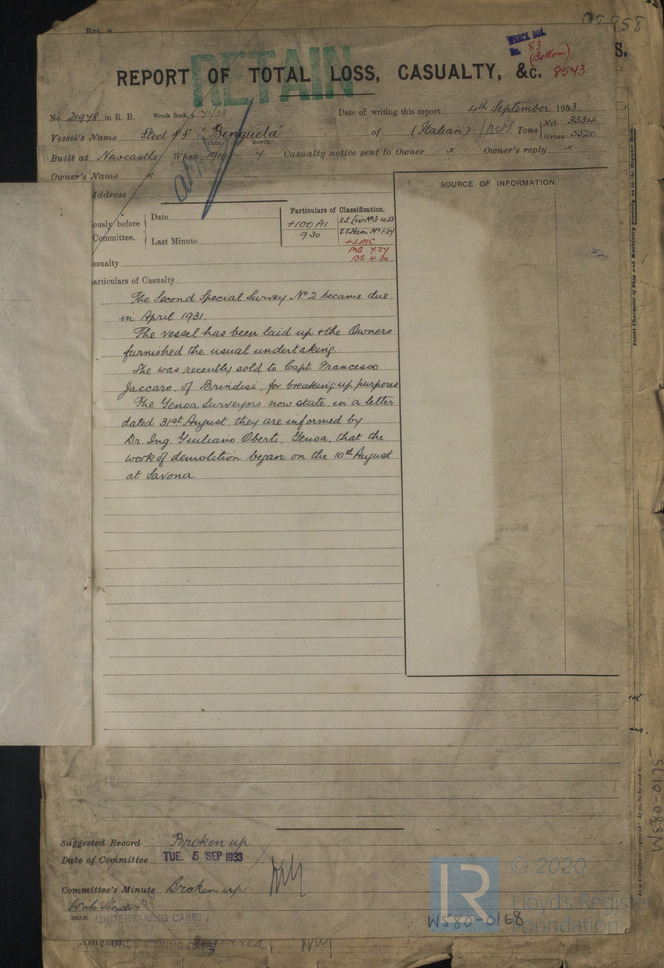 WRECK BOX.
No. 83
(Bottom)
8543
RETAIN
REPORT OF TOTAL LOSS, CASUALTY, &c.
No. 21948 in R. B.
Wreck Book
Date of writing this report 4th September 1933
Vessel's Name Steel SS "Benguela" of (Italian) Tons Net 3534 Gross 5520
Built at Newcastle When 1910 - 4 Casualty notice sent to Owner x Owner's reply x
Owner's Name x
Address
SOURCE OF INFORMATION.
iously before
Committee.
Date
Last Minute
Particulars of Classification.
+100A1
9.30
+LMC
BS 4.30
asualty
articulars of Casualty
The Second Special Survey No 2 became due
in April 1931.
The vessel has been laid up & the Owners
furnished the usual undertaking.
She was recently sold to Capt. Francesco
Jaccaro, of Brindisi, for breaking up purposes.
The Genoa Surveyors now state, in a letter
dated 31st August, they are informed by
Dr Ing. Giuliano Oberti, Genoa, that the
work of demolition began on the 10th August
at Savona
Suggested Record Broken up
Date of Committee TUE. 5 SEP 1933
Committee's Minute Broken up
UNDERTAKING CASE
LR
© 2020
Lloyd's Register
Foundation
WS80-0168
WS80-0175